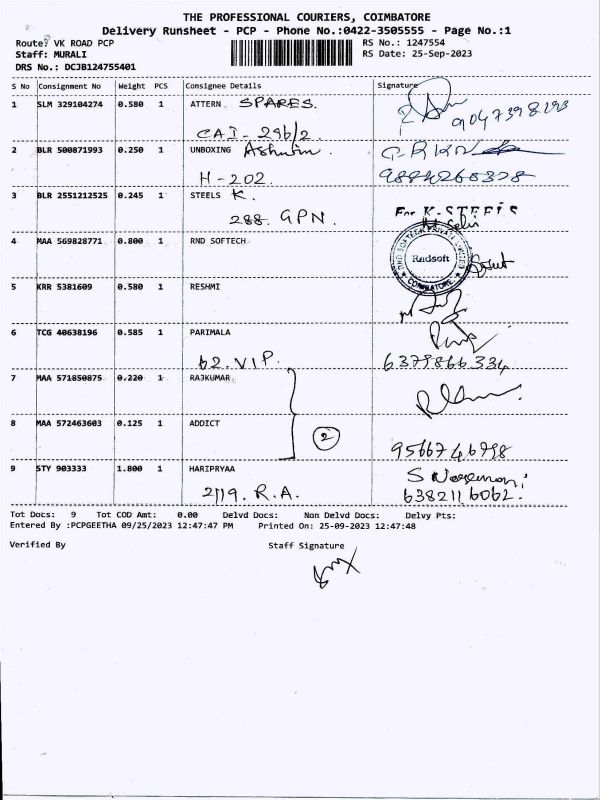 THE PROFESSIONAL COURIERS, COIMBATORE
Delivery Runsheet - PCP - Phone No.:0422-3505555 - Page No.:1
Route: VK ROAD PCP
RS No.: 1247554
Staff: MURALI
RS Date: 25-Sep-2023
DRS No.: DCJB124755401
S No Consignment No Weight PCS Consignee Details Signature
1 SLM 329104274 0.580 1 ATTERN SPARES.
CAI - 296/2.
2 BLR 500871993 0.250 1 UNBOXING Ashwin.
H-202.
3 BLR 2551212525 0.245 1 STEELS K.
288. GPN.
For K-STEELS
4 MAA 569828771 0.800 1 RND SOFTECH
RND SOFTECH PRIVATE LIMITED
Rndsoft
COIMBATORE
5 KRR 5381609 0.580 1 RESHMI
6 TCG 40638196 0.585 1 PARIMALA
62. V.I.P. 6379866334
7 MAA 571850875 0.220 1 RAJKUMAR
8 MAA 572463603 0.125 1 ADDICT
2
9566746798
9 STY 903333 1.800 1 HARIPRYAA
2/19. R.A. 6382116062.
Tot Docs: 9 Tot COD Amt: 0.00 Delvd Docs: Non Delvd Docs: Delvy Pts:
Entered By :PCPGEETHA 09/25/2023 12:47:47 PM Printed On: 25-09-2023 12:47:48
Verified By Staff Signature